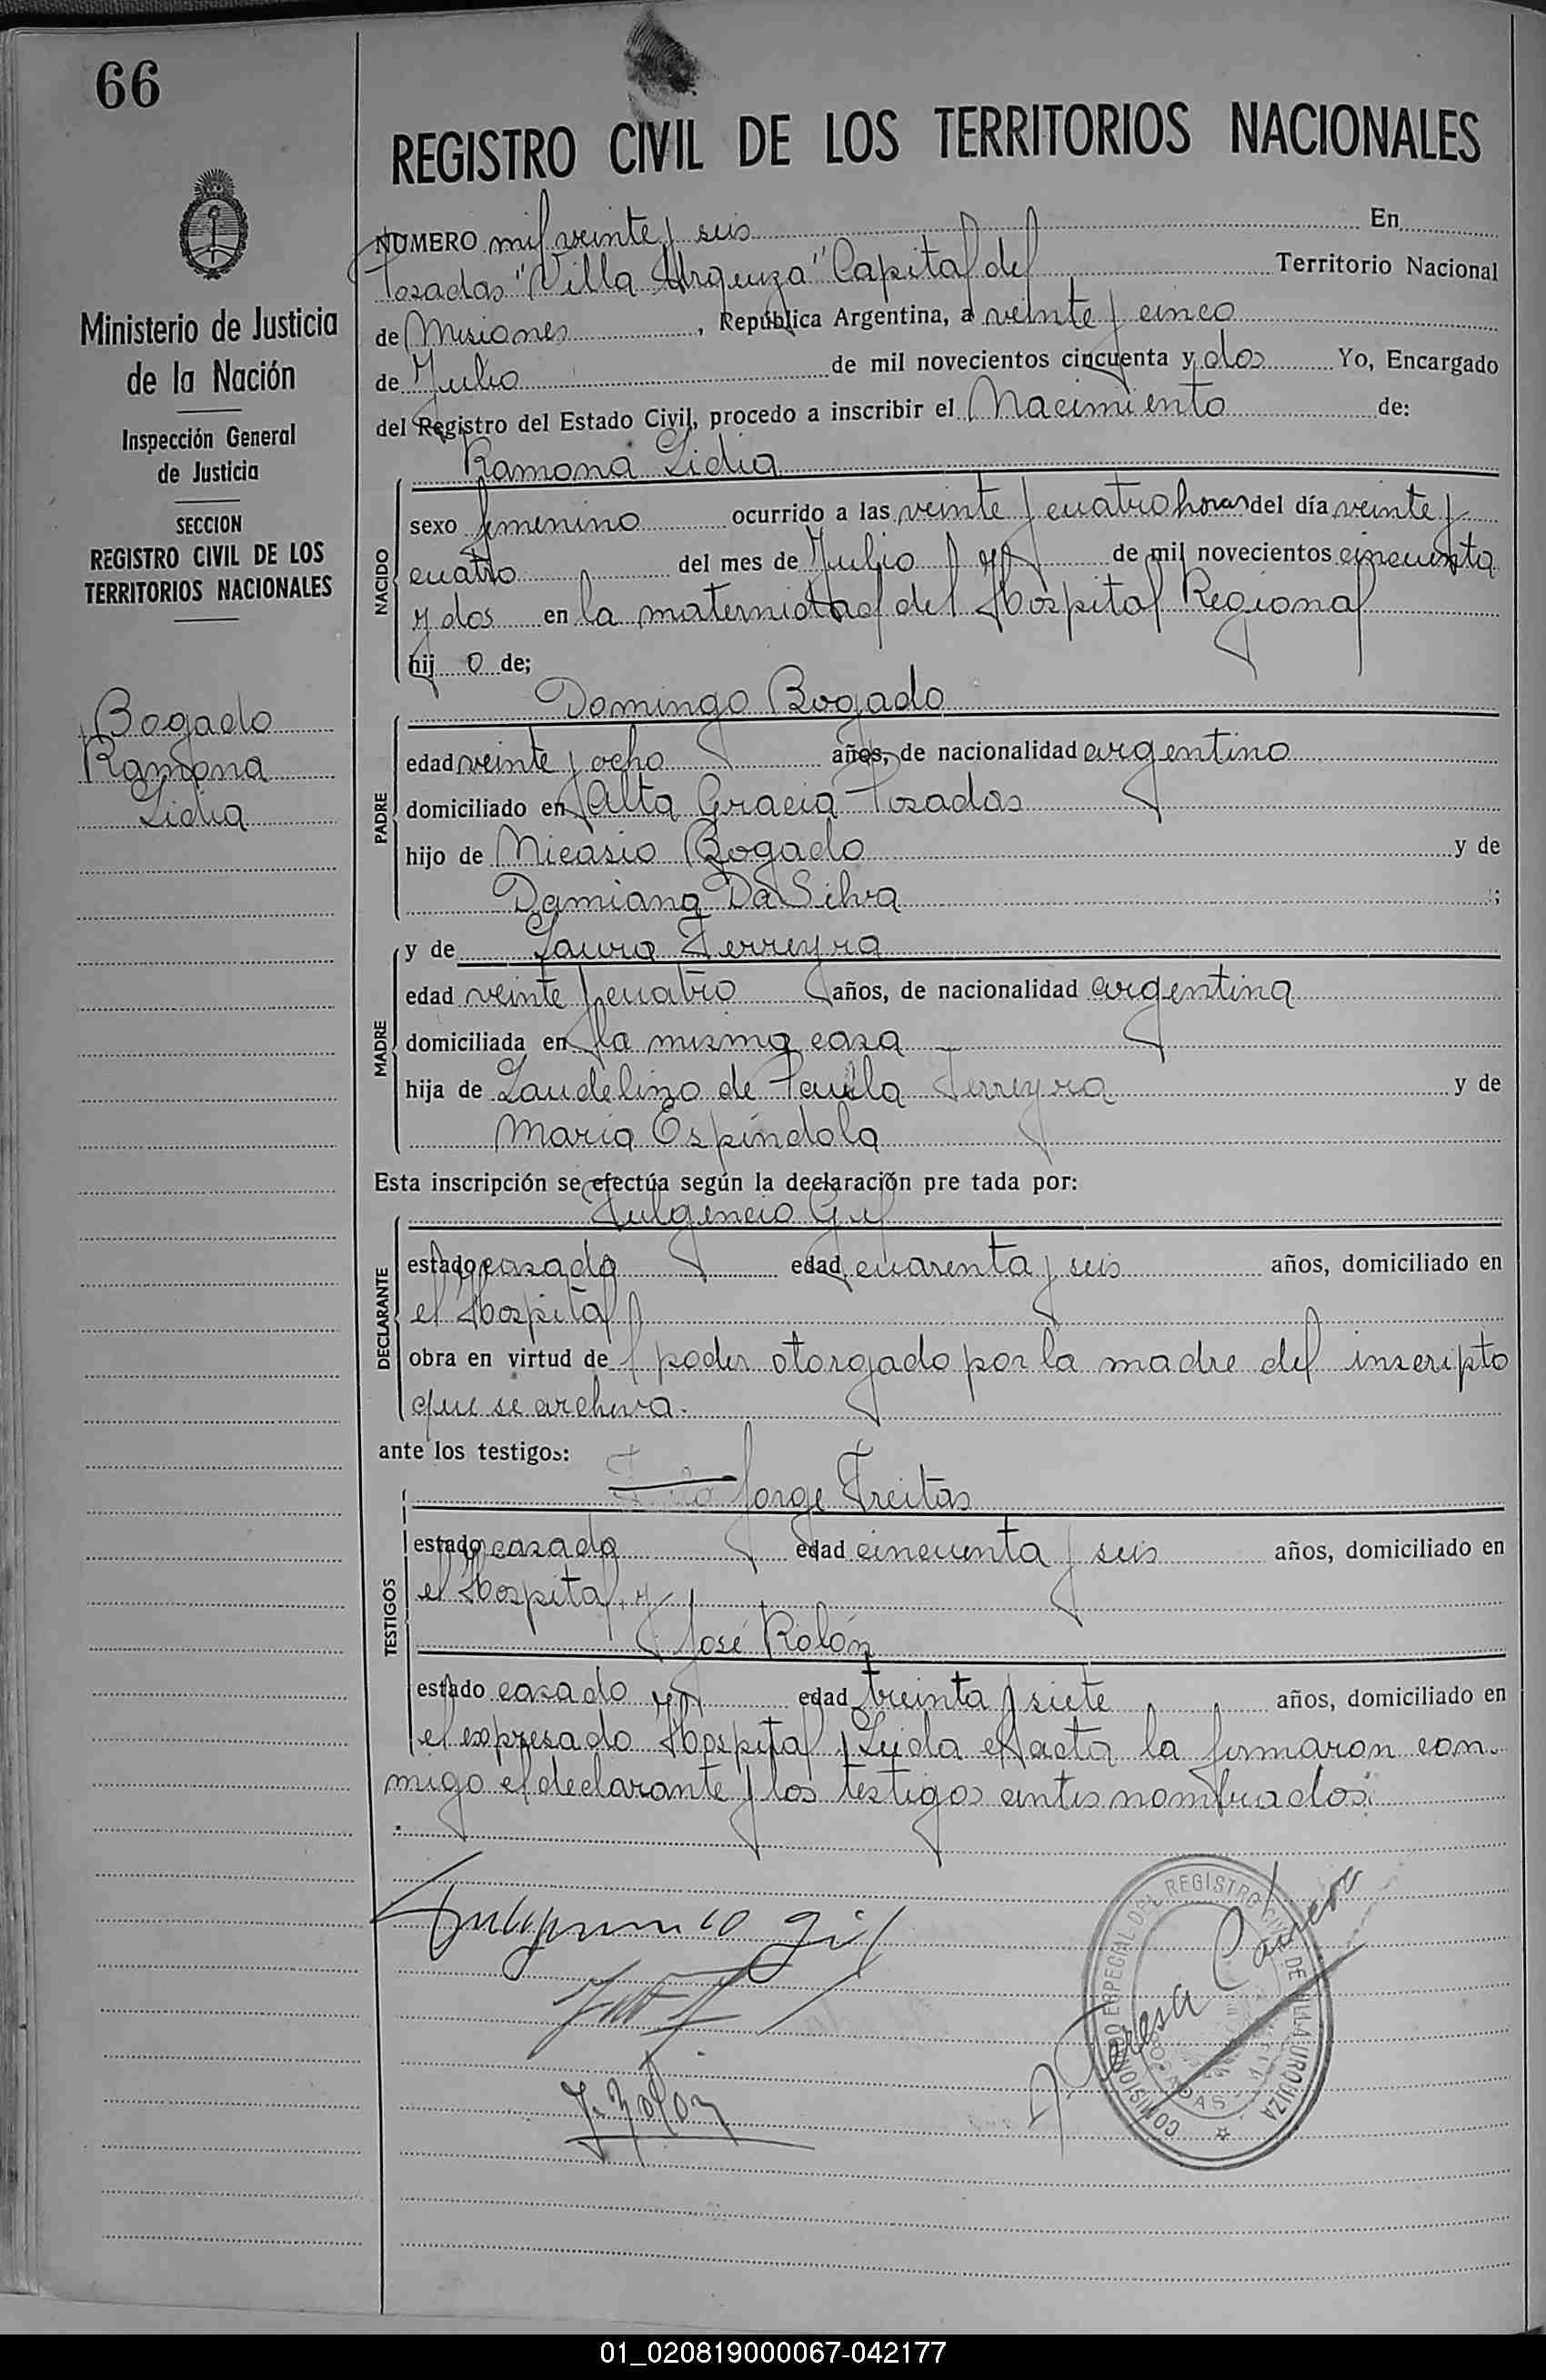 66
REGISTRO CIVIL DE LOS TERRITORIOS NACIONALES
Ministerio de Justicia
de la Nación
Inspección General
de Justicia
SECCION
REGISTRO CIVIL DE LOS
TERRITORIOS NACIONALES
Bogado
Ramona
Lidia
NUMERO mil veinte y seis En
Posadas "Villa Urquiza" Capital del Territorio Nacional
de Misiones, República Argentina, a veinte y cinco
de Julio de mil novecientos cincuenta y dos Yo, Encargado
del Registro del Estado Civil, procedo a inscribir el Nacimiento de:
Ramona Lidia
NACIDO
sexo femenino ocurrido a las veinte y cuatro horas del día veinte y
cuatro del mes de Julio de mil novecientos cincuenta
y dos en la maternidad del Hospital Regional
hij o de;
Domingo Bogado
PADRE
edad veinte y ocho años, de nacionalidad argentino
domiciliado en Alta Gracia Posadas
hijo de Nicasio Bogado y de
Damiana Da Silva ;
y de Laura Ferreyra
MADRE
edad veinte y cuatro años, de nacionalidad argentina
domiciliada en la misma casa
hija de Laudelino de Paula Ferreyra y de
Maria Espíndola
Esta inscripción se efectúa según la declaración pre tada por:
Fulgencio Gil
DECLARANTE
estado casado edad cuarenta y seis años, domiciliado en
el Hospital
obra en virtud de poder otorgado por la madre del inscripto
que se archiva.
ante los testigos:
Jorge Freitas
TESTIGOS
estado casado edad cincuenta y seis años, domiciliado en
el Hospital, y
José Rolón
estado casado edad treinta y siete años, domiciliado en
el expresado Hospital y Leida el acta la firmaron con-
migo el declarante y los testigos antes nombrados.
Fulgencio Gil
J. Rolon
Teresa
COMISIONADO ESPECIAL DEL REGISTRO CIVIL DE VILLA URQUIZA
POSADAS
01_020819000067-042177